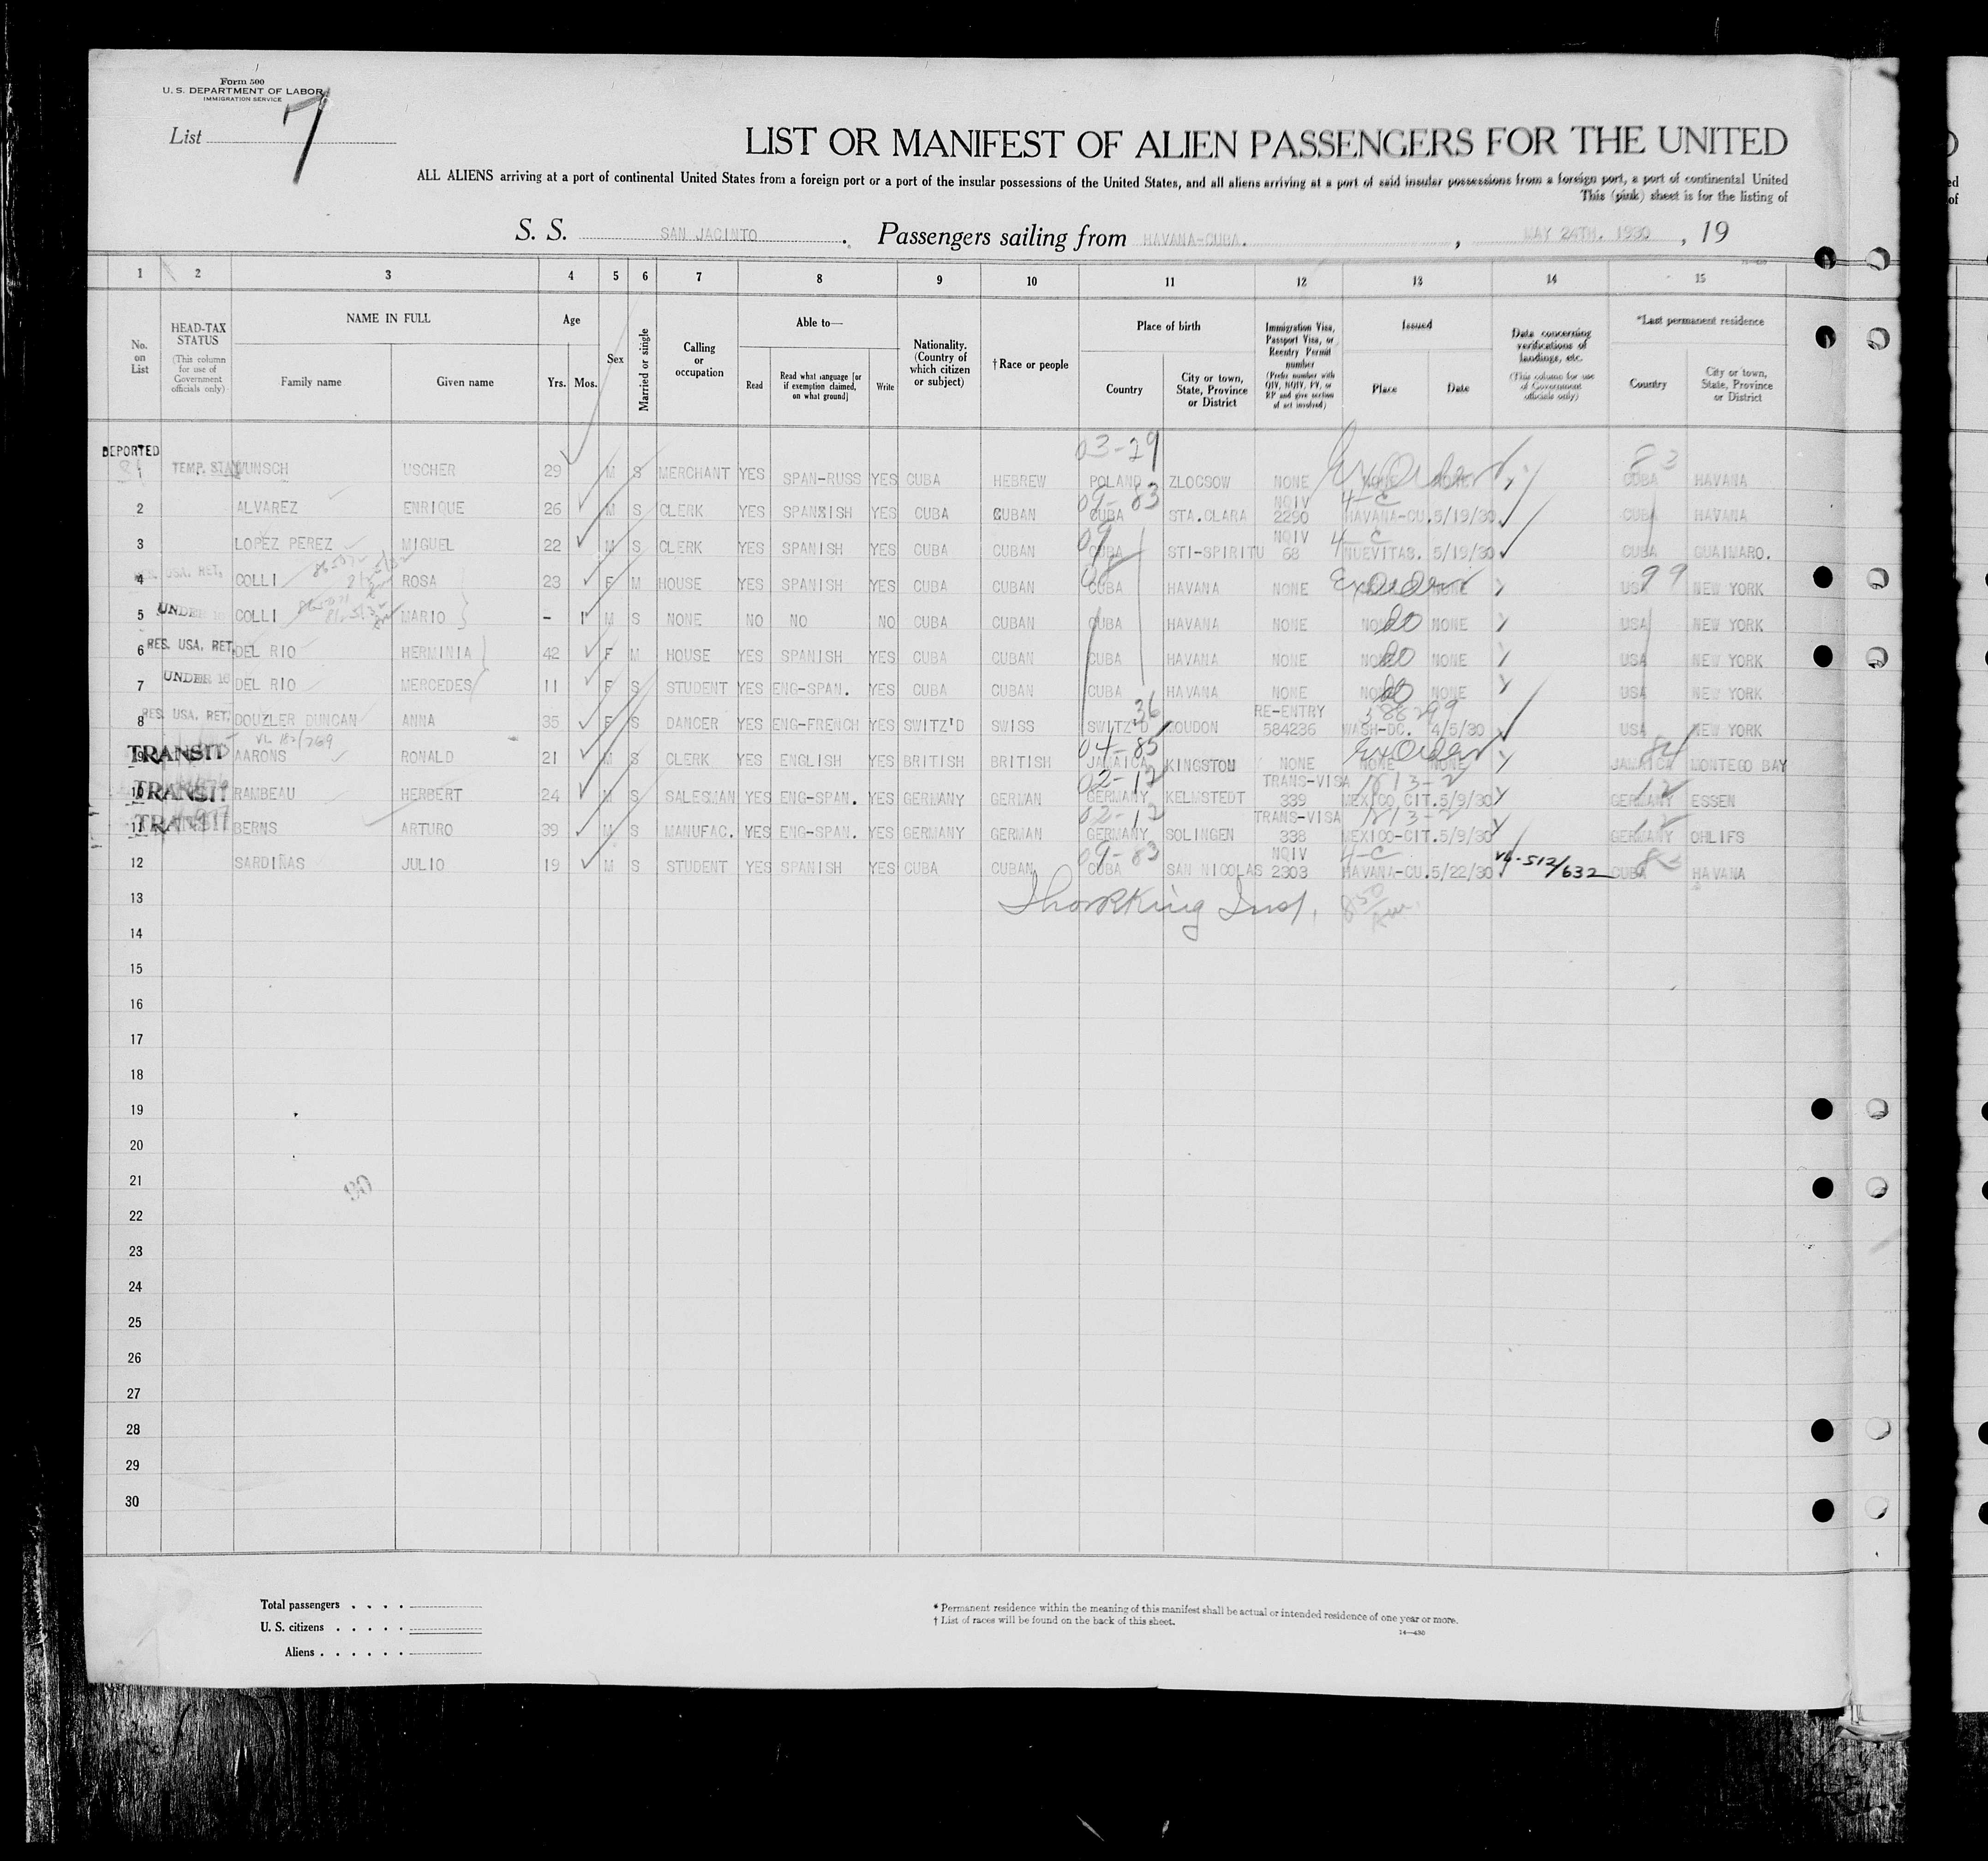 Form 500
U. S. DEPARTMENT OF LABOR
IMMIGRATION SERVICE
List 7
LIST OR MANIFEST OF ALIEN PASSENGERS FOR THE UNITED
ALL ALIENS arriving at a port of continental United States from a foreign port or a port of the insular possessions of the United States, and all aliens arriving at a port of said insular possessions from a foreign port, a port of continental United
This (pink) sheet is for the listing of
S. S. SAN JACINTO. Passengers sailing from HAVANA-CUBA. , MAY 24TH. 1930 , 19
1 2 3 4 5 6 7 8 9 10 11 12 13 14 15
No. on List
HEAD-TAX STATUS (This column for use of Government officials only)
NAME IN FULL
Family name Given name
Age
Yrs. Mos.
Sex
Married or single
Calling or occupation
Able to—
Read Read what language [or if exemption claimed, on what ground] Write
Nationality. (Country of which citizen or subject)
† Race or people
Place of birth
Country City or town, State, Province or District
Immigration Visa, Passport Visa, or Reentry Permit number (Prefix number with QIV, NQIV, PV, or RP and give section of act involved)
Issued
Place Date
Data concerning verifications of landings, etc. (This column for use of Government officials only)
*Last permanent residence
Country City or town, State, Province or District
DEPORTED 03-29
1 TEMP. STAY WUNSCH USCHER 29 M S MERCHANT YES SPAN-RUSS YES CUBA HEBREW POLAND ZLOCSOW NONE NONE NONE Ex Order 83 CUBA HAVANA
09-83 NQIV 4-C
2 ALVAREZ ENRIQUE 26 M S CLERK YES SPANXISH YES CUBA CUBAN CUBA STA.CLARA 2290 HAVANA-CU. 5/19/30 CUBA HAVANA
09 NQIV 4-C
3 LOPEZ PEREZ MIGUEL 22 M S CLERK YES SPANISH YES CUBA CUBAN CUBA STI-SPIRITU 68 NUEVITAS. 5/19/30 CUBA GUAIMARO.
4 RES. USA. RET. COLLI ROSA 23 F M HOUSE YES SPANISH YES CUBA CUBAN CUBA HAVANA NONE Ex Order NONE USA 99 NEW YORK
5 UNDER 16 COLLI MARIO - 1 M S NONE NO NO NO CUBA CUBAN CUBA HAVANA NONE NONE do NONE USA NEW YORK
6 RES. USA. RET. DEL RIO HERMINIA 42 F M HOUSE YES SPANISH YES CUBA CUBAN CUBA HAVANA NONE NONE do NONE USA NEW YORK
7 UNDER 16 DEL RIO MERCEDES 11 F S STUDENT YES ENG-SPAN. YES CUBA CUBAN CUBA HAVANA NONE NONE do NONE USA NEW YORK
36 RE-ENTRY
8 RES. USA. RET. DOUZLER DUNCAN ANNA 35 F S DANCER YES ENG-FRENCH YES SWITZ'D SWISS SWITZ'D MOUDON 584236 WASH-DC. 4/5/30 USA NEW YORK
04-85 Ex Order 84
9 TRANSIT AARONS RONALD 21 M S CLERK YES ENGLISH YES BRITISH BRITISH JAMAICA KINGSTON NONE NONE NONE JAMAICA MONTEGO BAY
02-12 TRANS-VISA 12
10 TRANSIT RAMBEAU HERBERT 24 M S SALESMAN YES ENG-SPAN. YES GERMANY GERMAN GERMANY KELMSTEDT 339 MEXICO CIT. 5/9/30 GERMANY ESSEN
02-12 TRANS-VISA 12
11 TRANSIT BERNS ARTURO 39 M S MANUFAC. YES ENG-SPAN. YES GERMANY GERMAN GERMANY SOLINGEN 338 MEXICO-CIT. 5/9/30 GERMANY OHLIFS
09-83 NQIV 4-C
12 SARDIÑAS JULIO 19 M S STUDENT YES SPANISH YES CUBA CUBAN CUBA SAN NICOLAS 2303 HAVANA-CU. 5/22/30 VL-512/632 83 CUBA HAVANA
13
14
15
16
17
18
19
20
21
22
23
24
25
26
27
28
29
30
Total passengers . . . .
U. S. citizens . . . . .
Aliens . . . . . .
* Permanent residence within the meaning of this manifest shall be actual or intended residence of one year or more.
† List of races will be found on the back of this sheet.
14—430